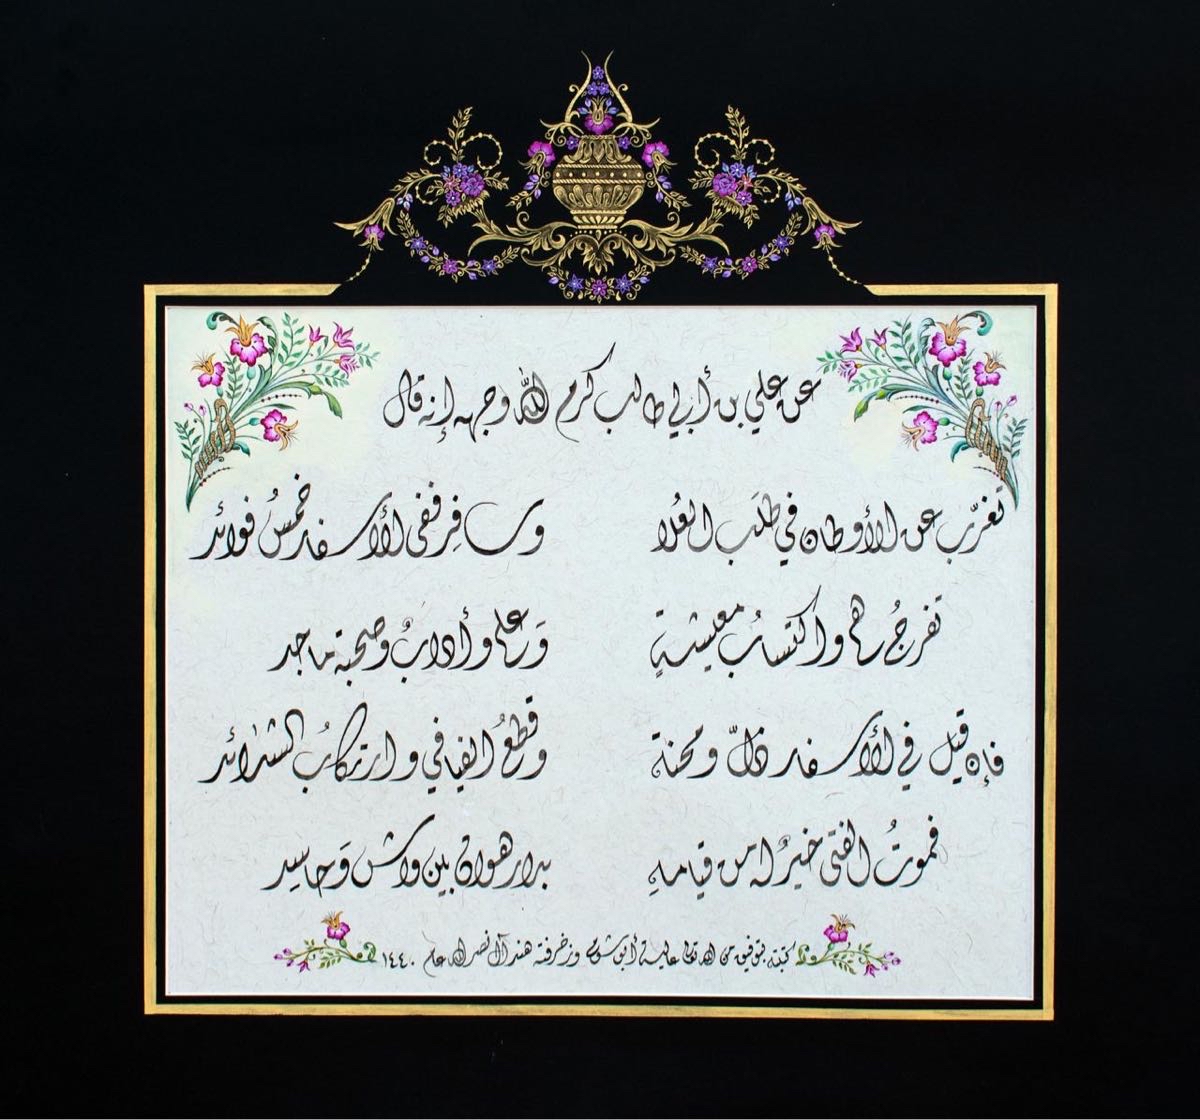 عن علي بن أبي طالب كرم الله وجهه إنه قال
تغرّب عن الأوطان في طلَب العُلا وسافِر ففي الأسفار خمسُ فوائد
تفرجُ هم واكتسابُ معيشةٍ وَعلم وأدابٌ وصحبة ماجد
فإن قيل في الأسفار ذلّ ومحنة وقطعُ الفيافي وارتكابُ الشدائد
فموتُ الفتى خيرٌ له من قيامهِ بدار هوان بين واش وَحاسِد
كتبته بتوفيق من الله تعالى عالية أبو شوشه وزخرفته هند آل نصر الله عام ١٤٤٠